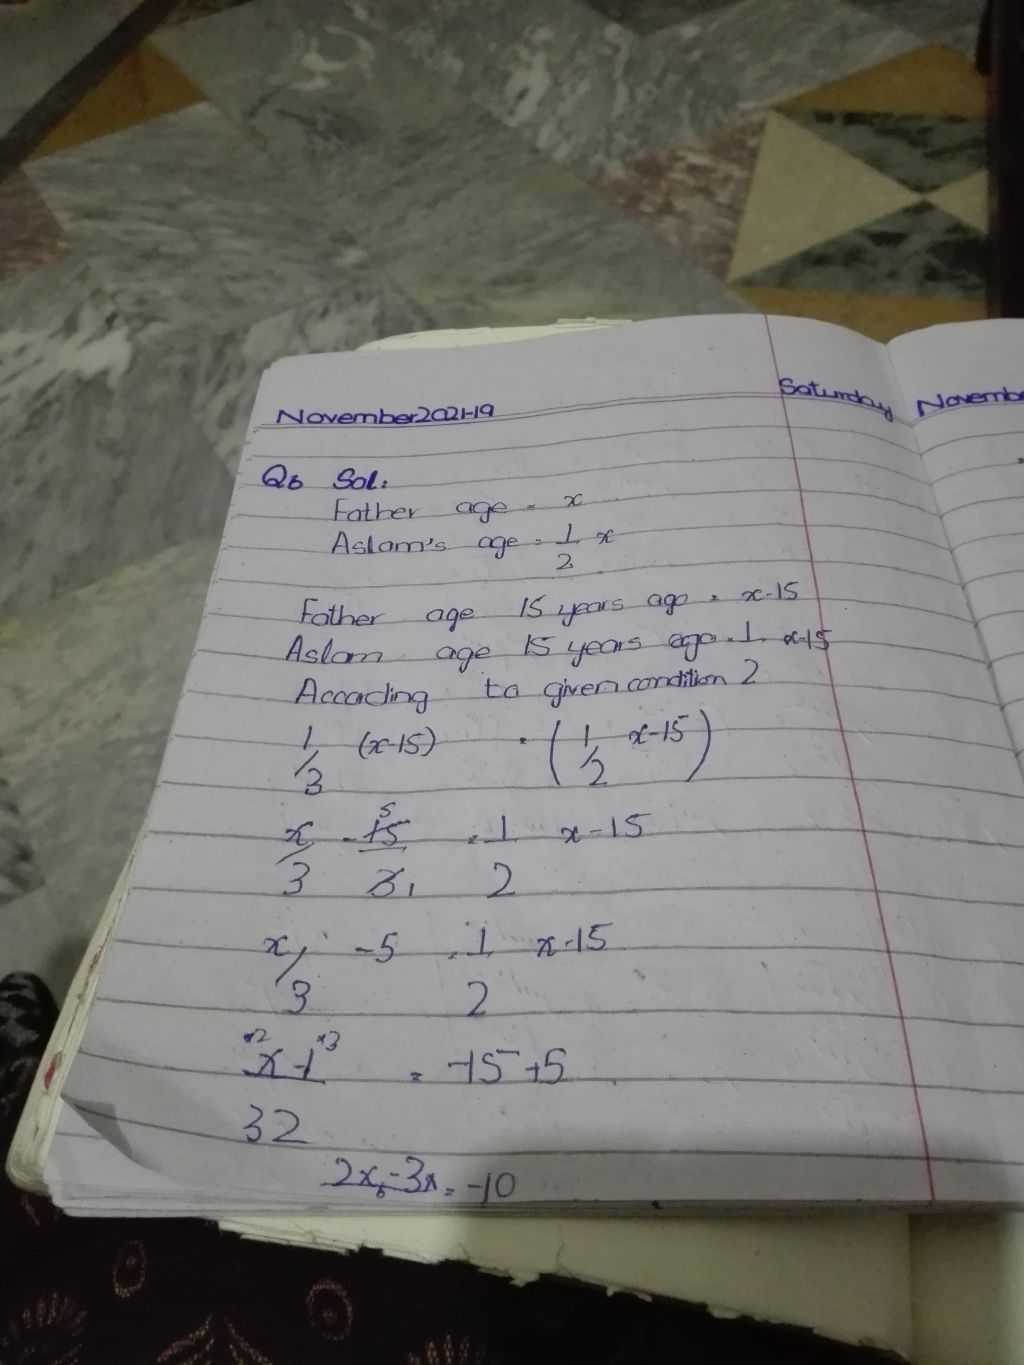 November2021-19
Saturday
Novembe
Q6 Sol:
Father age = x
Aslam's age = 1/2 x
Father age 15 years ago = x-15
Aslam age 15 years ago = 1 x-15
According to given condition 2
1/3 (x-15) = (1/2 x-15)
x/3 - 15/3 5 1 = 1/2 x-15
x/3 -5 = 1/2 x-15
x2 x3
x-1 = -15+5
32
2x-3x/6 = -10